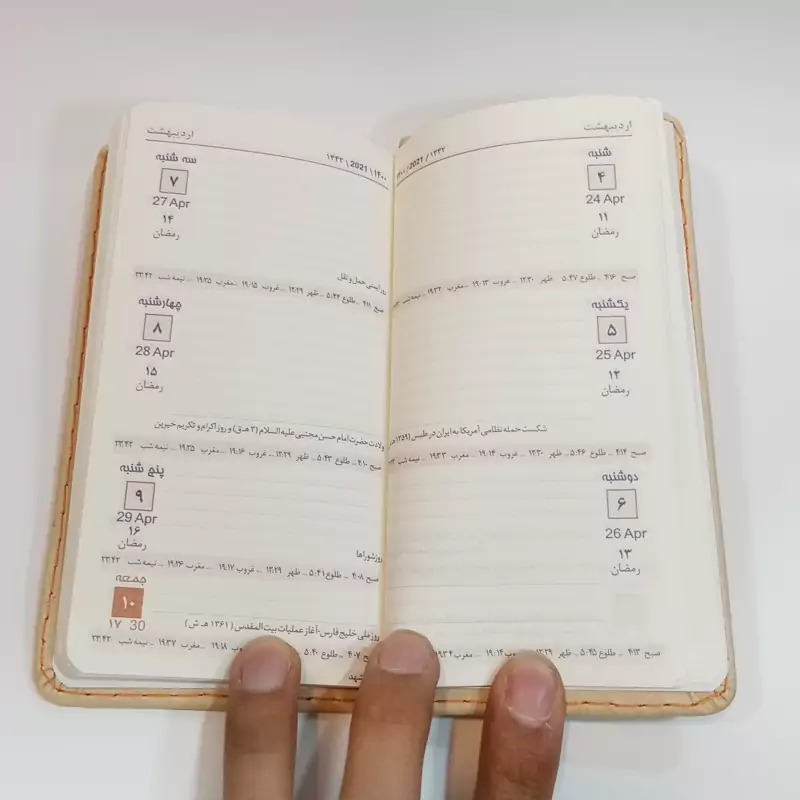 اردیبهشت
۱۴۰۰ / 2021 / ۱۴۴۲
شنبه
۴
24 Apr
۱۱
رمضان
صبح ۴:۱۶ _ طلوع ۵:۴۷ _ ظهر ۱۲:۳۰ _ غروب ۱۹:۱۳ _ مغرب ۱۹:۳۲ _ نیمه شب
یکشنبه
۵
25 Apr
۱۲
رمضان
شکست حمله نظامی آمریکا به ایران در طبس (۱۳۵۹ ه
صبح ۴:۱۴ _ طلوع ۵:۴۶ _ ظهر ۱۲:۳۰ _ غروب ۱۹:۱۴ _ مغرب ۱۹:۳۳ _ نیمه شب
دوشنبه
۶
26 Apr
۱۳
رمضان
صبح ۴:۱۳ _ طلوع ۵:۴۵ _ ظهر ۱۲:۲۹ _ غروب ۱۹:۱۴ _ مغرب ۱۹:۳۴
اردیبهشت
۱۴۰۰ \ 2021 \ ۱۴۴۲
سه شنبه
۷
27 Apr
۱۴
رمضان
روز ایمنی حمل و نقل
صبح ۴:۱۱ _ طلوع ۵:۴۴ _ ظهر ۱۲:۲۹ _ غروب ۱۹:۱۵ _ مغرب ۱۹:۳۵ _ نیمه شب ۲۳:۴۲
چهارشنبه
۸
28 Apr
۱۵
رمضان
ولادت حضرت امام حسن مجتبی علیه السلام (۳ ه.ق) و روز اکرام و تکریم خیرین
صبح ۴:۱۰ _ طلوع ۵:۴۳ _ ظهر ۱۲:۲۹ _ غروب ۱۹:۱۶ _ مغرب ۱۹:۳۵ _ نیمه شب ۲۳:۴۲
پنج شنبه
۹
29 Apr
۱۶
رمضان
روز شوراها
صبح ۴:۰۸ _ طلوع ۵:۴۱ _ ظهر ۱۲:۲۹ _ غروب ۱۹:۱۷ _ مغرب ۱۹:۳۶ _ نیمه شب ۲۳:۴۲
جمعه
۱۰
۱۷ 30
روز ملی خلیج فارس-آغاز عملیات بیت المقدس (۱۳۶۱ ه.ش)
۴:۰۷ _ طلوع ۵:۴۰ _ غروب ۱۹:۱۸ _ مغرب ۱۹:۳۷ _ نیمه شب ۲۳:۴۲